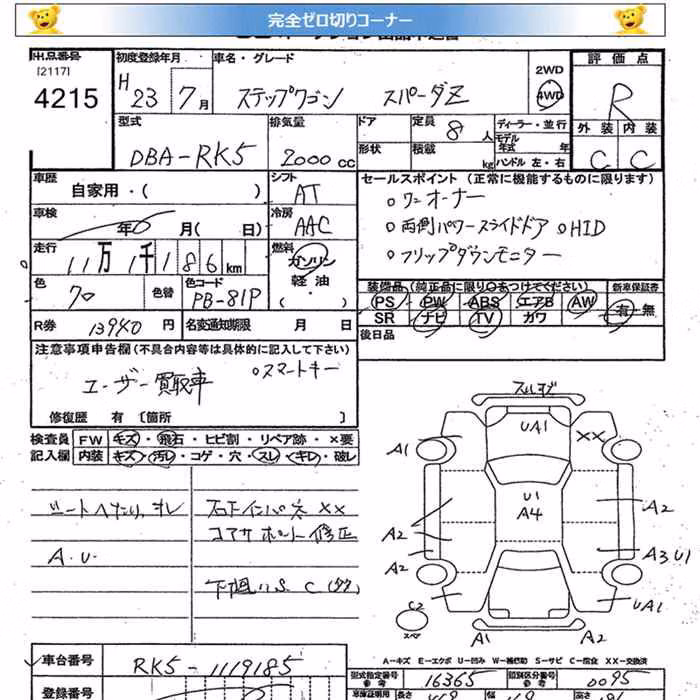 完全ゼロ切りコーナー
出品番号
[2117]
4215
初度登録年月
H 23 7月
車名・グレード
ステップワゴン スパーダZ
2WD
4WD
評価点
R
外装 内装
C C
型式
DBA-RK5
排気量
2000cc
ドア
形状
定員 8人
積載 kg
ディーラー・並行
モデル年式 年
ハンドル 左・右
車歴
自家用・( )
シフト
AT
車検
年 月( 日)
冷房
AAC
走行
11万1千186km
燃料
ガソリン
軽油
・( )
色
色替
色コード
PB-81P
R券 13940円
名変通知期限 月 日
セールスポイント(正常に機能するものに限ります)
○ワンオーナー
○両側パワースライドドア ○HID
○フリップダウンモニター
装備品(純正品に限り○をつけてください)
新車保証書
PS PW ABS エアB AW
SR ナビ TV カワ
有・無
後日品
注意事項申告欄(不具合内容等は具体的に記入して下さい)
ユーザー買取車
○スマートキー
修復歴 有〔箇所 〕
検査員 FW キズ・飛石・ヒビ割・リペア跡・×要
記入欄 内装 キズ・汚レ・コゲ・穴・スレ・キレ・破レ
シートヘタリ,オレ
A.U.
××
コアサポート修正
C
UA1
××
A1
U1
A4
A2
A2
A2
A3U1
UA1
C2
スペア
A1
A2
A-キズ E-エクボ U-凹ミ W-補修跡 S-サビ C-腐食 XX-交換済
車台番号
RK5-1119185
型式指定番号
参考
16365
類別区分番号
参考
0095
登録番号
車庫証明用
長さ
高さ